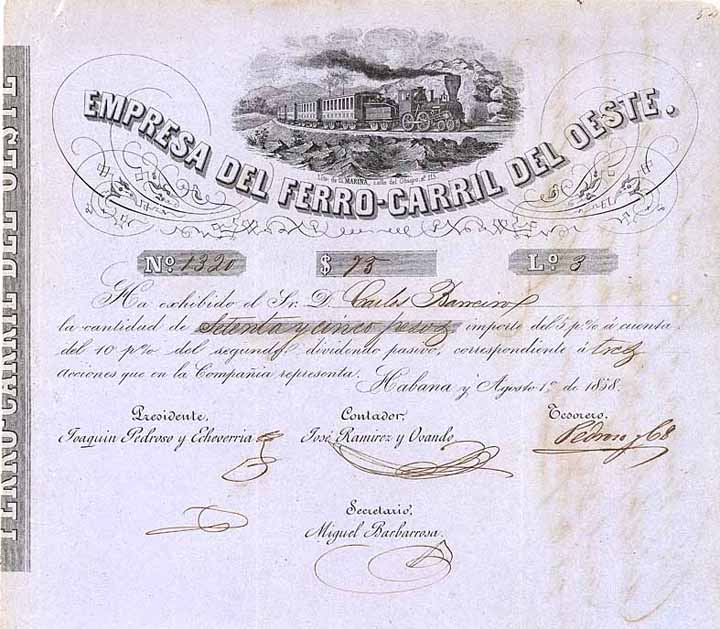 EMPRESA DEL FERRO-CARRIL DEL OESTE.
Lito. de D. MARINA, calle del Obispo, nº 113.
FERRO-CARRIL DEL OESTE
Nº 1320 $ 75 Lº 3
Ha exhibido el Sr. D. Carlos Barreiro
la cantidad de Setenta y cinco pesos importe del 5 p.% á cuenta
del 10 p.% del segundo dividendo pasivo, correspondiente á tres
acciones que en la Compañia representa. Habana y Agosto 1º de 1858.
Presidente, Contador, Tesorero,
Joaquin Pedroso y Echeverria José Ramirez y Ovando Pedroso y Cª
Secretario,
Miguel Barbarrosa.